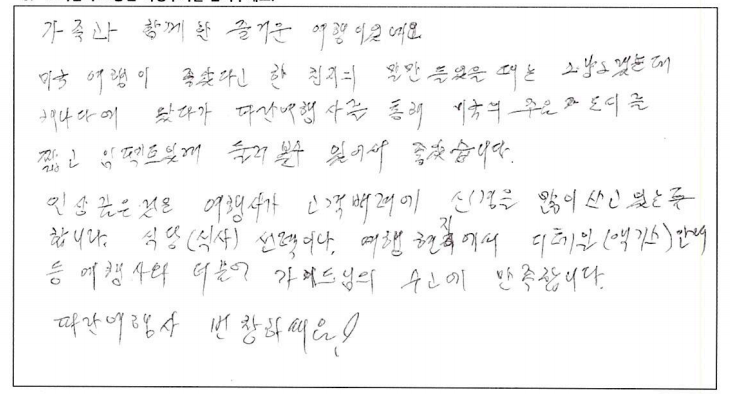 가족과 함께 한 즐거운 여행이었네요
미국 여행이 좋았다고 한 친지의 말만 들었을 때는 그냥그랬는데
캐나다에 왔다가 파란여행사를 통해 미국의 주요 도시를
짧고 임펙트있게 둘러 볼수 있어서 좋았습니다.
인상 깊은것은 여행사가 고객배려에 신경을 많이 쓰고 있는듯
합니다. 식당(식사) 선택이나, 여행 현지에서 디테일(엑기스)안내
등 여행사와 더불어 가이드님의 수고에 만족합니다.
파란여행사 번창하세요!